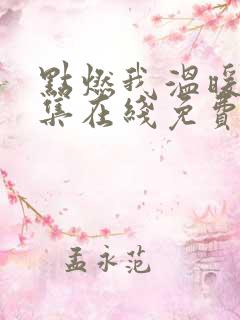 點燃我溫暖
集在綫免費
孟永范